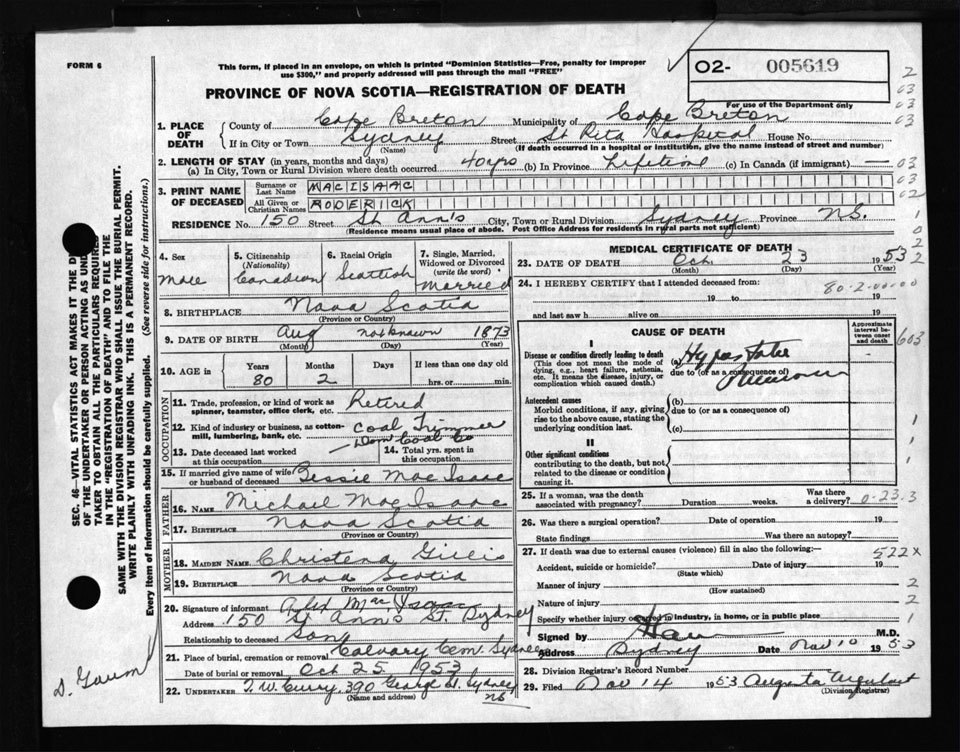 FORM 6
This form, if placed in an envelope, on which is printed "Dominion Statistics—Free, penalty for improper
use $300," and properly addressed will pass through the mail "FREE"
02- 005619
For use of the Department only
PROVINCE OF NOVA SCOTIA—REGISTRATION OF DEATH
1. PLACE OF DEATH County of Cape Breton Municipality of Cape Breton
If in City or Town Sydney (Name) Street St Rita Hospital House No.
(If death occurred in a hospital or institution, give the name instead of street and number)
2. LENGTH OF STAY (in years, months and days)
(a) In City, Town or Rural Division where death occurred 40 yrs (b) In Province Lifetime (c) In Canada (if immigrant) —
3. PRINT NAME OF DECEASED Surname or Last Name MACISAAC
All Given or Christian Names RODERICK
RESIDENCE No. 150 Street St Ann's City, Town or Rural Division Sydney Province N.S.
(Residence means usual place of abode. Post Office Address for residents in rural parts not sufficient)
4. Sex Male
5. Citizenship (Nationality) Canadian
6. Racial Origin Scottish
7. Single, Married, Widowed or Divorced (write the word) Married
8. BIRTHPLACE Nova Scotia
(Province or Country)
9. DATE OF BIRTH Aug (Month) not known (Day) 1873 (Year)
10. AGE in Years 80 Months 2 Days If less than one day old hrs. or min.
OCCUPATION
11. Trade, profession, or kind of work as spinner, teamster, office clerk, etc. Retired
12. Kind of industry or business, as cotton-mill, lumbering, bank, etc. Coal Trimmer
Dom Coal Co
13. Date deceased last worked at this occupation
14. Total yrs. spent in this occupation
15. If married give name of wife or husband of deceased Bessie MacIsaac
FATHER
16. NAME Michael MacIsaac
17. BIRTHPLACE Nova Scotia
(Province or Country)
MOTHER
18. MAIDEN NAME Christena Gillis
19. BIRTHPLACE Nova Scotia
(Province or Country)
20. Signature of informant Alex MacIsaac
Address 150 St Ann's St. Sydney
Relationship to deceased Son
21. Place of burial, cremation or removal Calvary Cem. Sydney
Date of burial or removal Oct 25, 1953
22. UNDERTAKER T.W. Curry, 390 George St. Sydney
(Name and address) NS
MEDICAL CERTIFICATE OF DEATH
23. DATE OF DEATH Oct. (Month) 23 (Day) 1953 (Year)
24. I HEREBY CERTIFY that I attended deceased from:
80-2-00-00
19 to 19
and last saw h alive on 19
CAUSE OF DEATH
Approximate interval between onset and death
I
Disease or condition directly leading to death (a) Hypostatic
(This does not mean the mode of dying, e.g., heart failure, asthenia, etc. It means the disease, injury, or complication which caused death.)
due to (or as a consequence of)
Antecedent causes
Morbid conditions, if any, giving rise to the above cause, stating the underlying condition last.
(b)
due to (or as a consequence of)
(c)
II
Other significant conditions
contributing to the death, but not related to the disease or condition causing it.
25. If a woman, was the death associated with pregnancy? Duration weeks. Was there a delivery?
0-23.3
26. Was there a surgical operation? Date of operation 19
State findings Was there an autopsy?
27. If death was due to external causes (violence) fill in also the following:—
522X
Accident, suicide or homicide? Date of injury 19
(State which)
Manner of injury
(How sustained)
Nature of injury
Specify whether injury occurred in industry, in home, or in public place
Signed by M.D.
Address Sydney Date Nov 10 1953
28. Division Registrar's Record Number
29. Filed Nov 14 1953 Augusta
(Division Registrar)
2
03
03
03
03
03
02
1
0
2
2
603
1
1
1
2
2
1
SEC. 46—VITAL STATISTICS ACT MAKES IT THE
OF THE UNDERTAKER OR PERSON ACTING AS
TAKER TO OBTAIN ALL THE PARTICULARS REQUIRED
IN THE "REGISTRATION OF DEATH" AND TO FILE THE
SAME WITH THE DIVISION REGISTRAR WHO SHALL ISSUE THE BURIAL PERMIT.
WRITE PLAINLY WITH UNFADING INK. THIS IS A PERMANENT RECORD.
Every item of information should be carefully supplied. (See reverse side for instructions.)